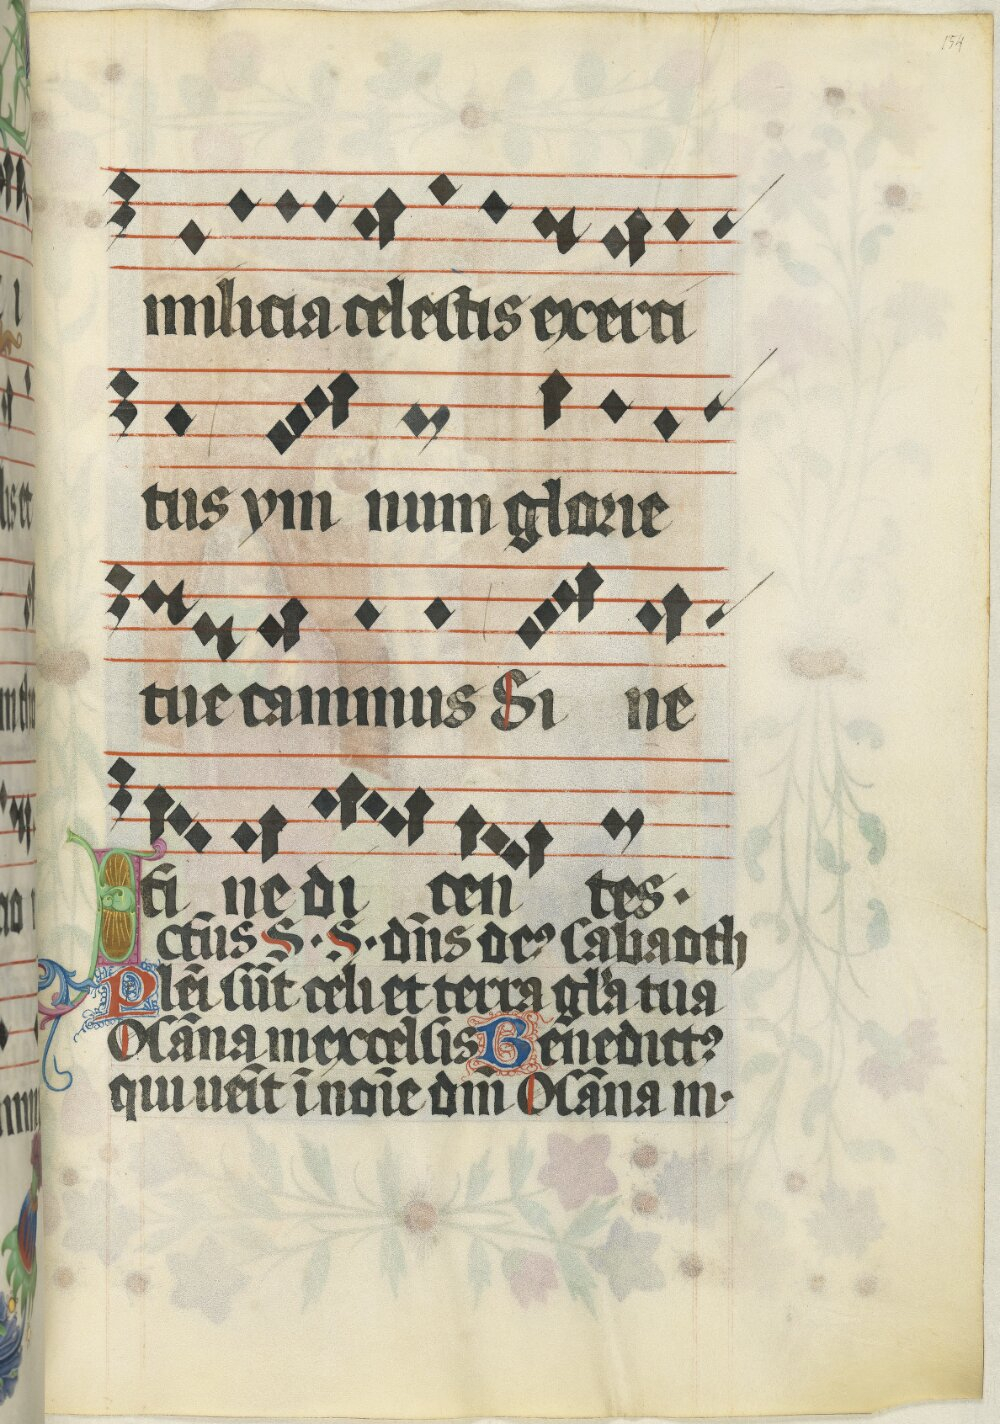 154
milicia celestis exerci
tus ym num glorie
tue canimus Si ne
fi ne di cen tes.
ctus S. S. dn̄s deꝰ sabaoth
Plēi sūt celi et terra gl̄a tua
Osāna in excelsis Benēdictꝰ
qui ueīt ī noīe dnī Osāna in.